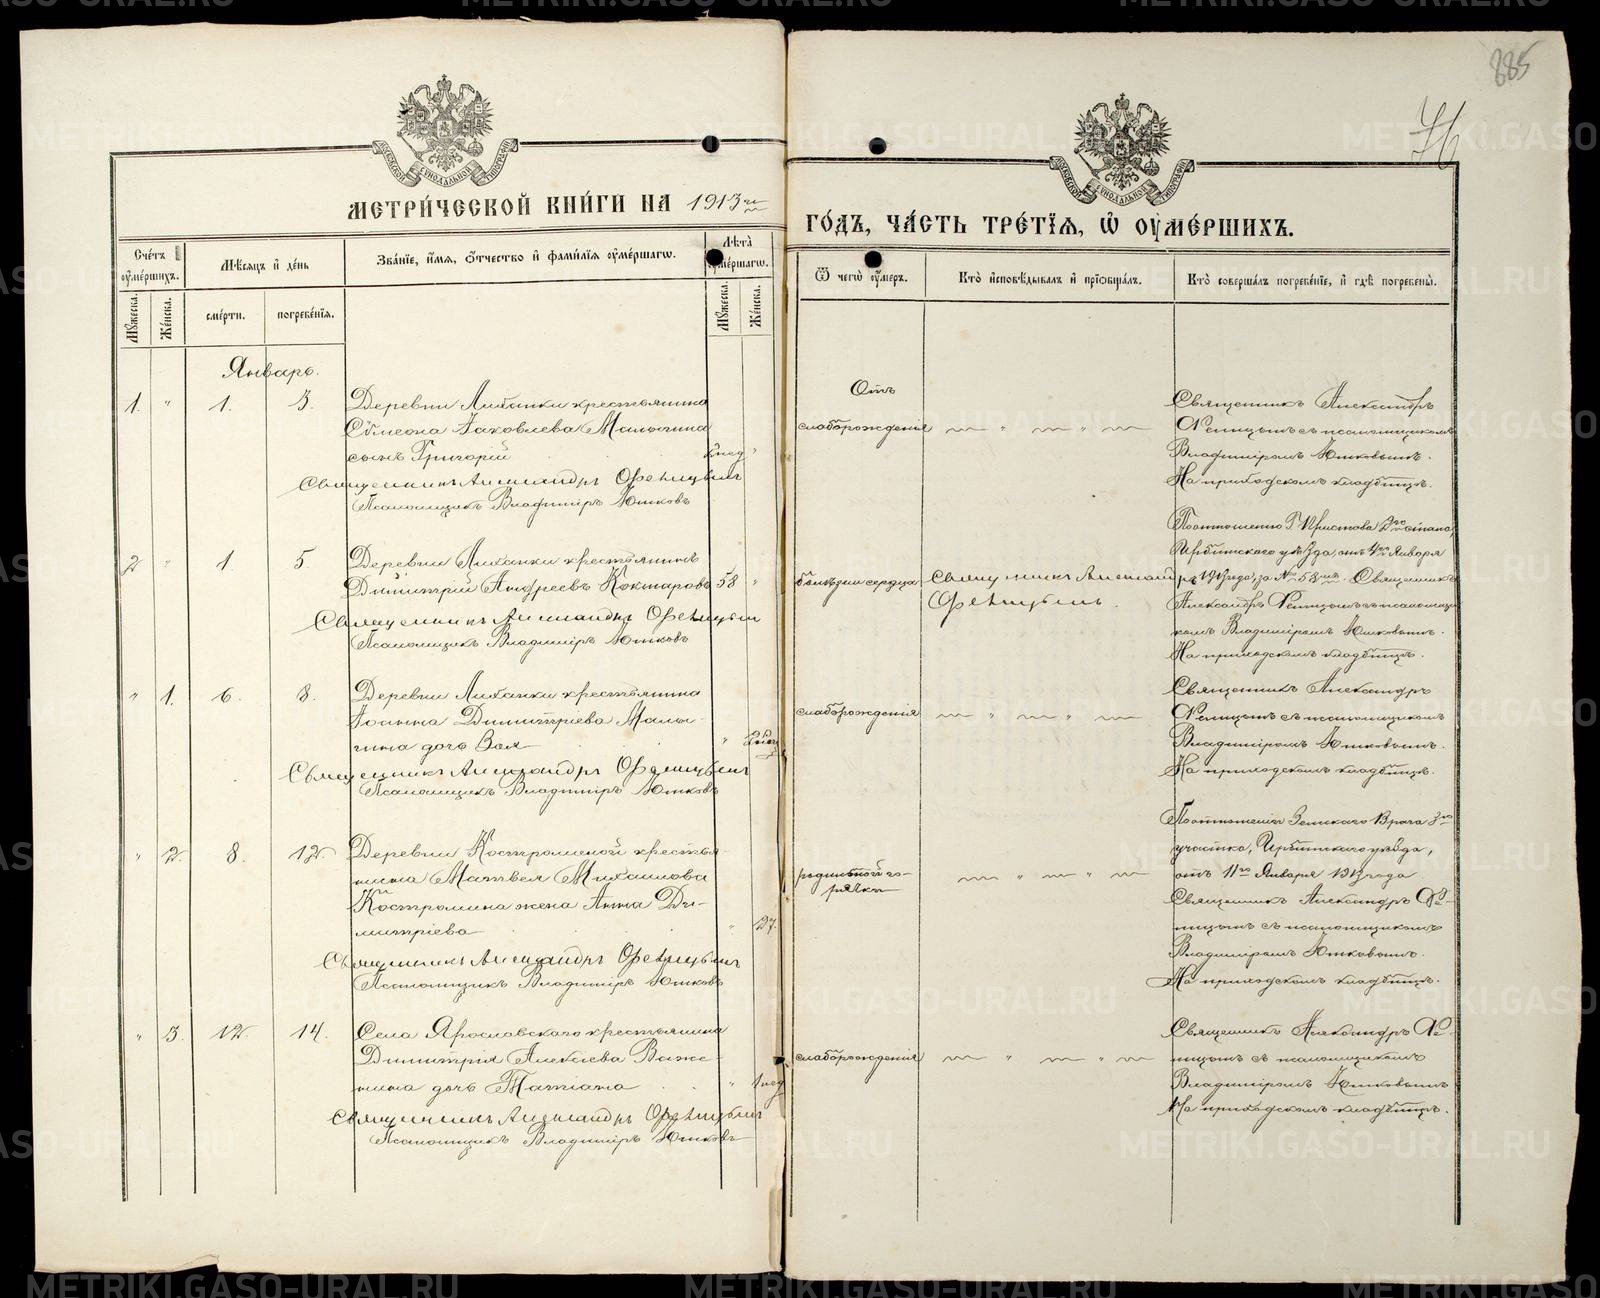 885
76
МЕТРИ́ЧЕСКОЙ КНИ́ГИ НА 1913й
ГО́ДЪ, ЧА́СТЬ ТРЕ́ТІѦ, Ѡ҆ ОУМЕ́РШИХЪ.
Сче́тъ оумершихъ.
Мѣсяцъ и день
Званіе, имя, отчество и фамилія оумершагѡ.
Лѣта оумершагѡ.
Мужеска.
Женска.
смерти.
погребенія.
Мужеска.
Женска.
Ѿ чегѡ оумеръ.
Кто исповѣдывалъ и пріобщалъ.
Кто совершалъ погребеніе, и гдѣ погребены.
Январь.
1. " 1. 3.
Деревни Лиханки крестьянина
Сѵмеона Іаковлева Малыгина
сынъ Григорій 2 нед "
Священникъ Александръ
Псаломщикъ Владиміръ Юшковъ
Отъ
слаборожденія
Священникъ Александръ
съ псаломщикомъ
Владиміромъ Юшковымъ.
На приходскомъ кладбищѣ.
2 " 1. 5.
Деревни Лиханки крестьянинъ
Димитрій Андреевъ Кокшаровъ 58 "
Священникъ Александръ
Псаломщикъ Владиміръ Юшковъ
болѣзни сердца
Священникъ Александръ
По отношенію Г. Пристава 2го стана,
Ирбитскаго уѣзда, отъ 4го Января
1913 года, за № 58мъ. Священникъ
Александръ съ псаломщи-
комъ Владиміромъ Юшковымъ.
На приходскомъ кладбищѣ.
" 1. 6. 8.
Деревни Лиханки крестьянина
Іоанна Димитріева Малы-
гина дочь Зоя " 2 нед
Священникъ Александръ
Псаломщикъ Владиміръ Юшковъ
слаборожденія
Священникъ Александръ
съ псаломщикомъ
Владиміромъ Юшковымъ.
На приходскомъ кладбищѣ.
" 2. 8. 12.
Деревни Костроминой крестья-
нина Матвея Михаилова
Костромина жена Анна Ди-
митріева " 27.
Священникъ Александръ
Псаломщикъ Владиміръ Юшковъ
родильной го-
рячки
По отношенію Земскаго Врача 3го
участка, Ирбитскаго уѣзда,
отъ 11го Января 1913 года.
Священникъ Александръ
съ псаломщикомъ
Владиміромъ Юшковымъ.
На приходскомъ кладбищѣ.
" 3. 12. 14.
Села Ярославскаго крестьянина
Димитрія Алексѣева Важе-
нина дочь Татіана " 1 нед
Священникъ Александръ
Псаломщикъ Владиміръ Юшковъ
слаборожденія
Священникъ Александръ
съ псаломщикомъ
Владиміромъ Юшковымъ
На приходскомъ кладбищѣ.
METRIKI.GASO-URAL.RU